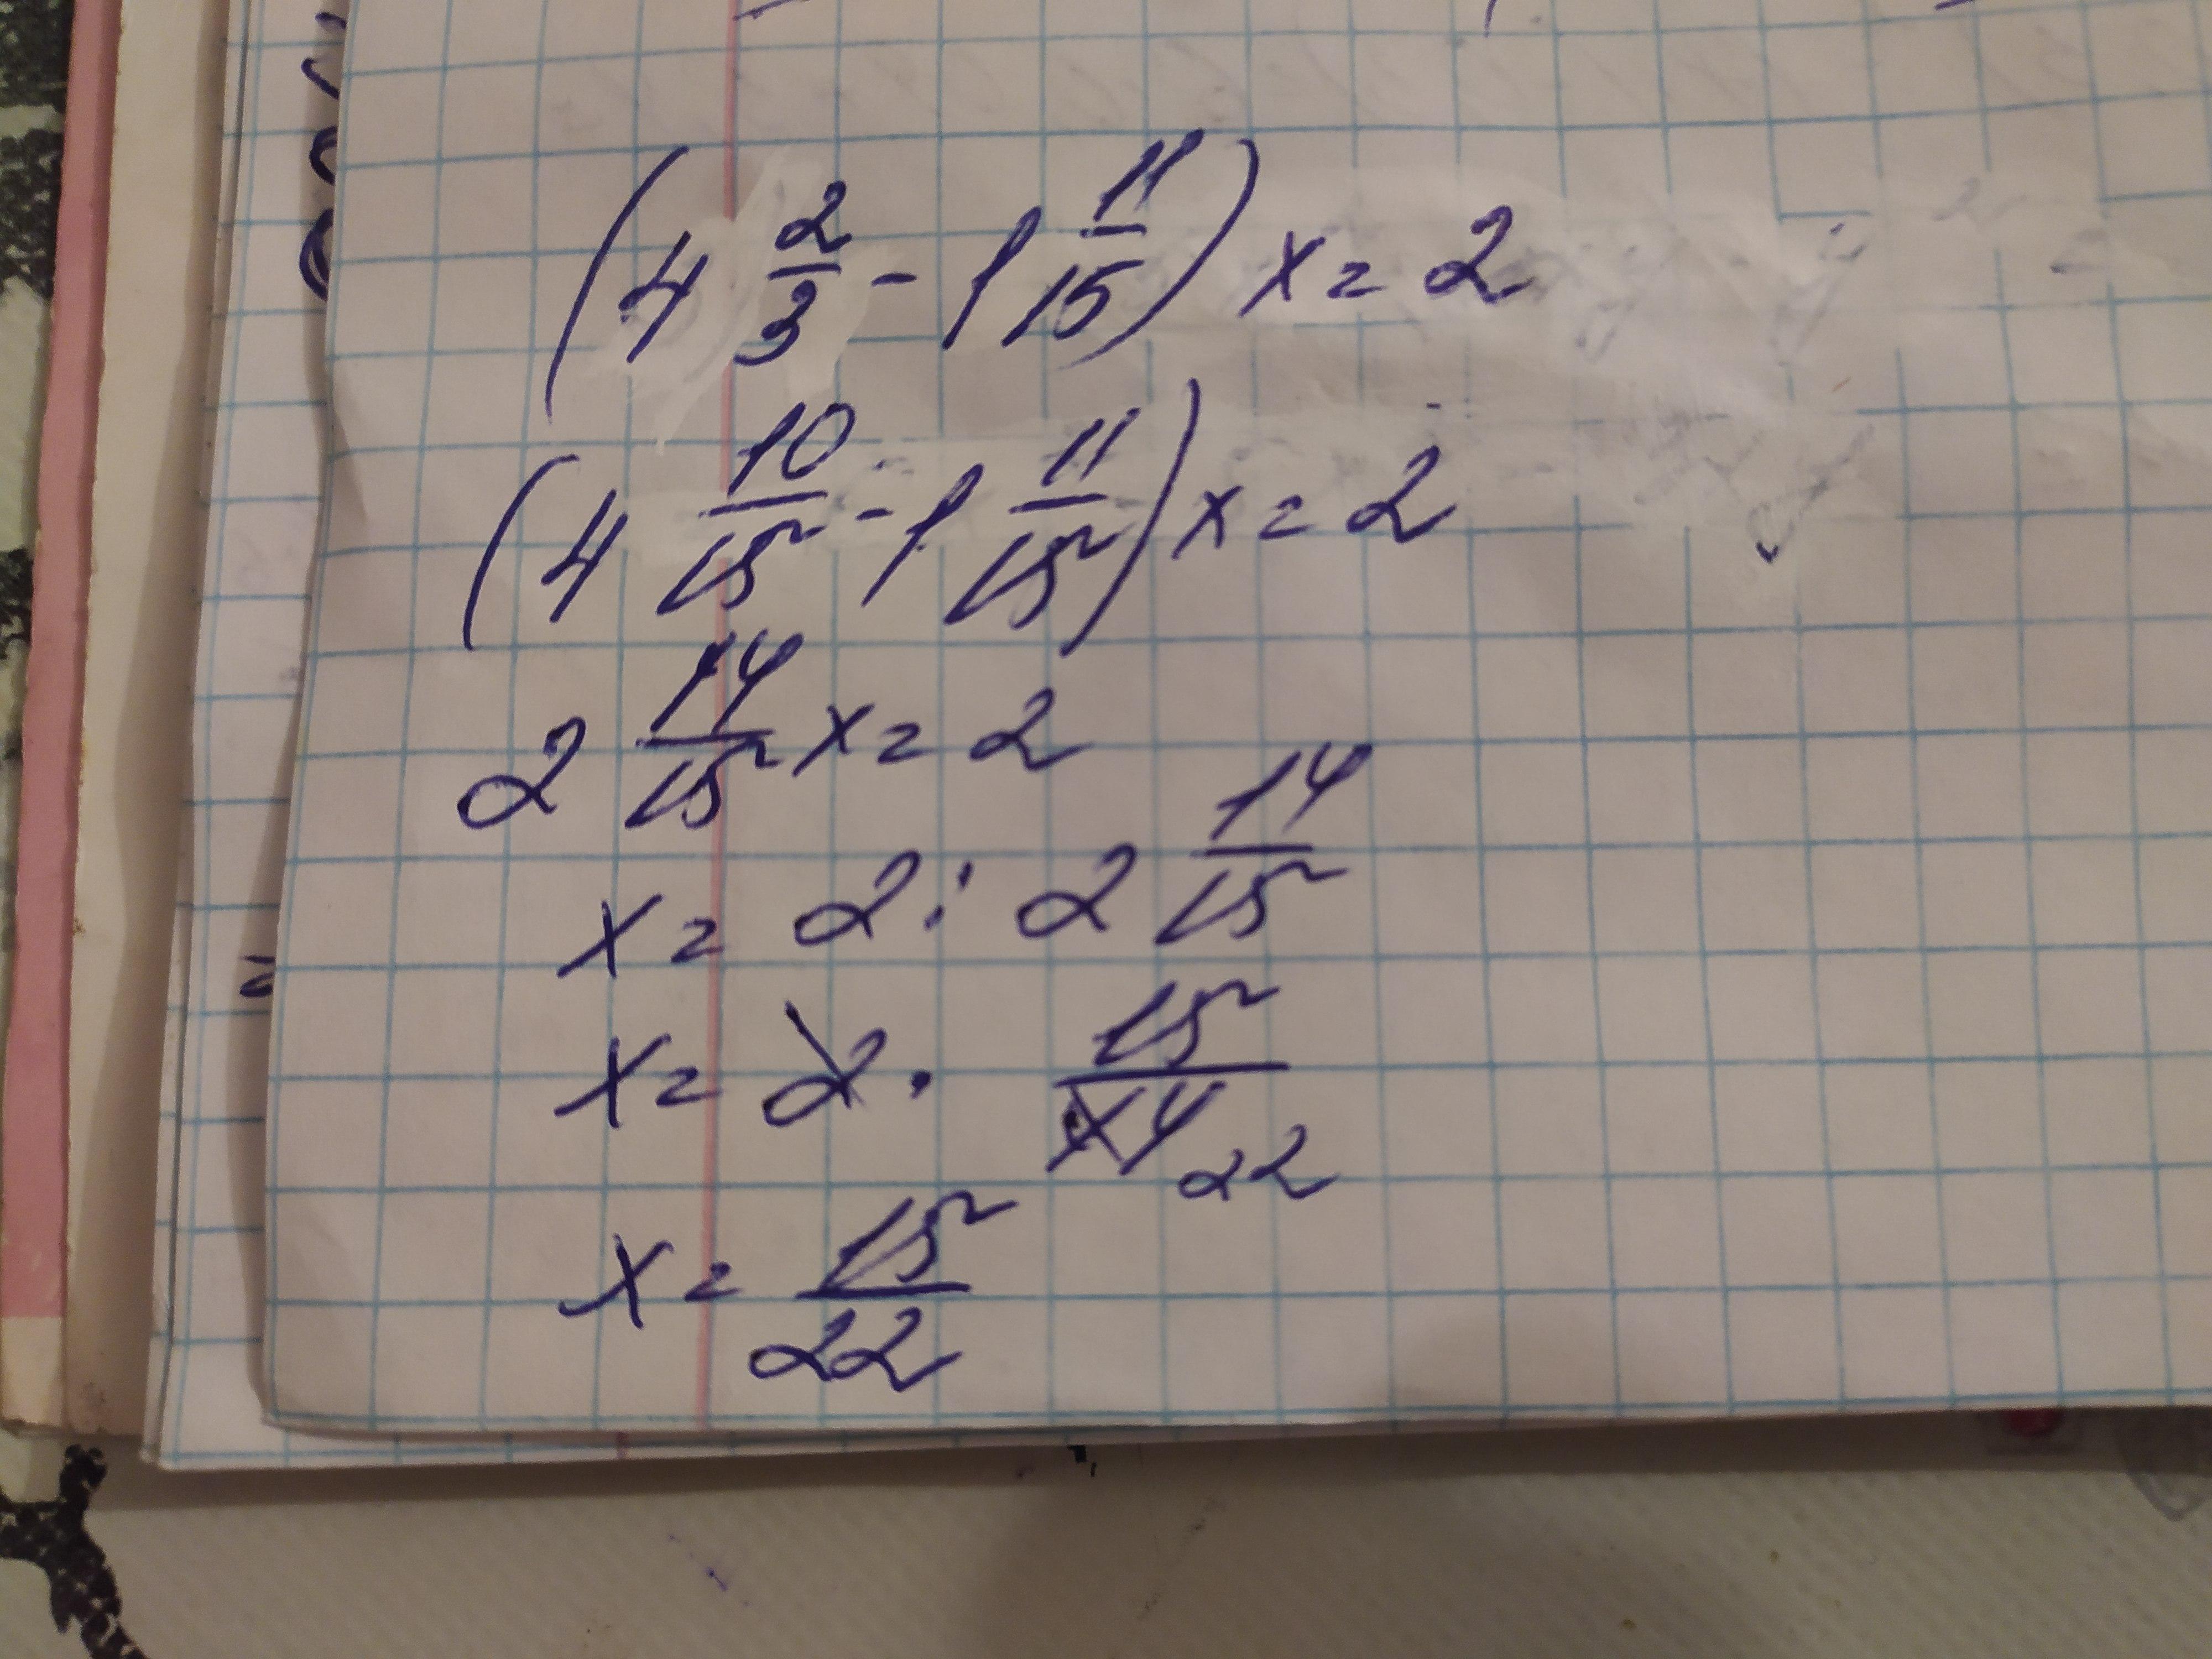 (4 2/3 - 1 11/15) x = 2
(4 10/15 - 1 11/15) x = 2
2 14/15 x = 2
x = 2 : 2 14/15
x = 2 · 15/44 22
x = 15/22